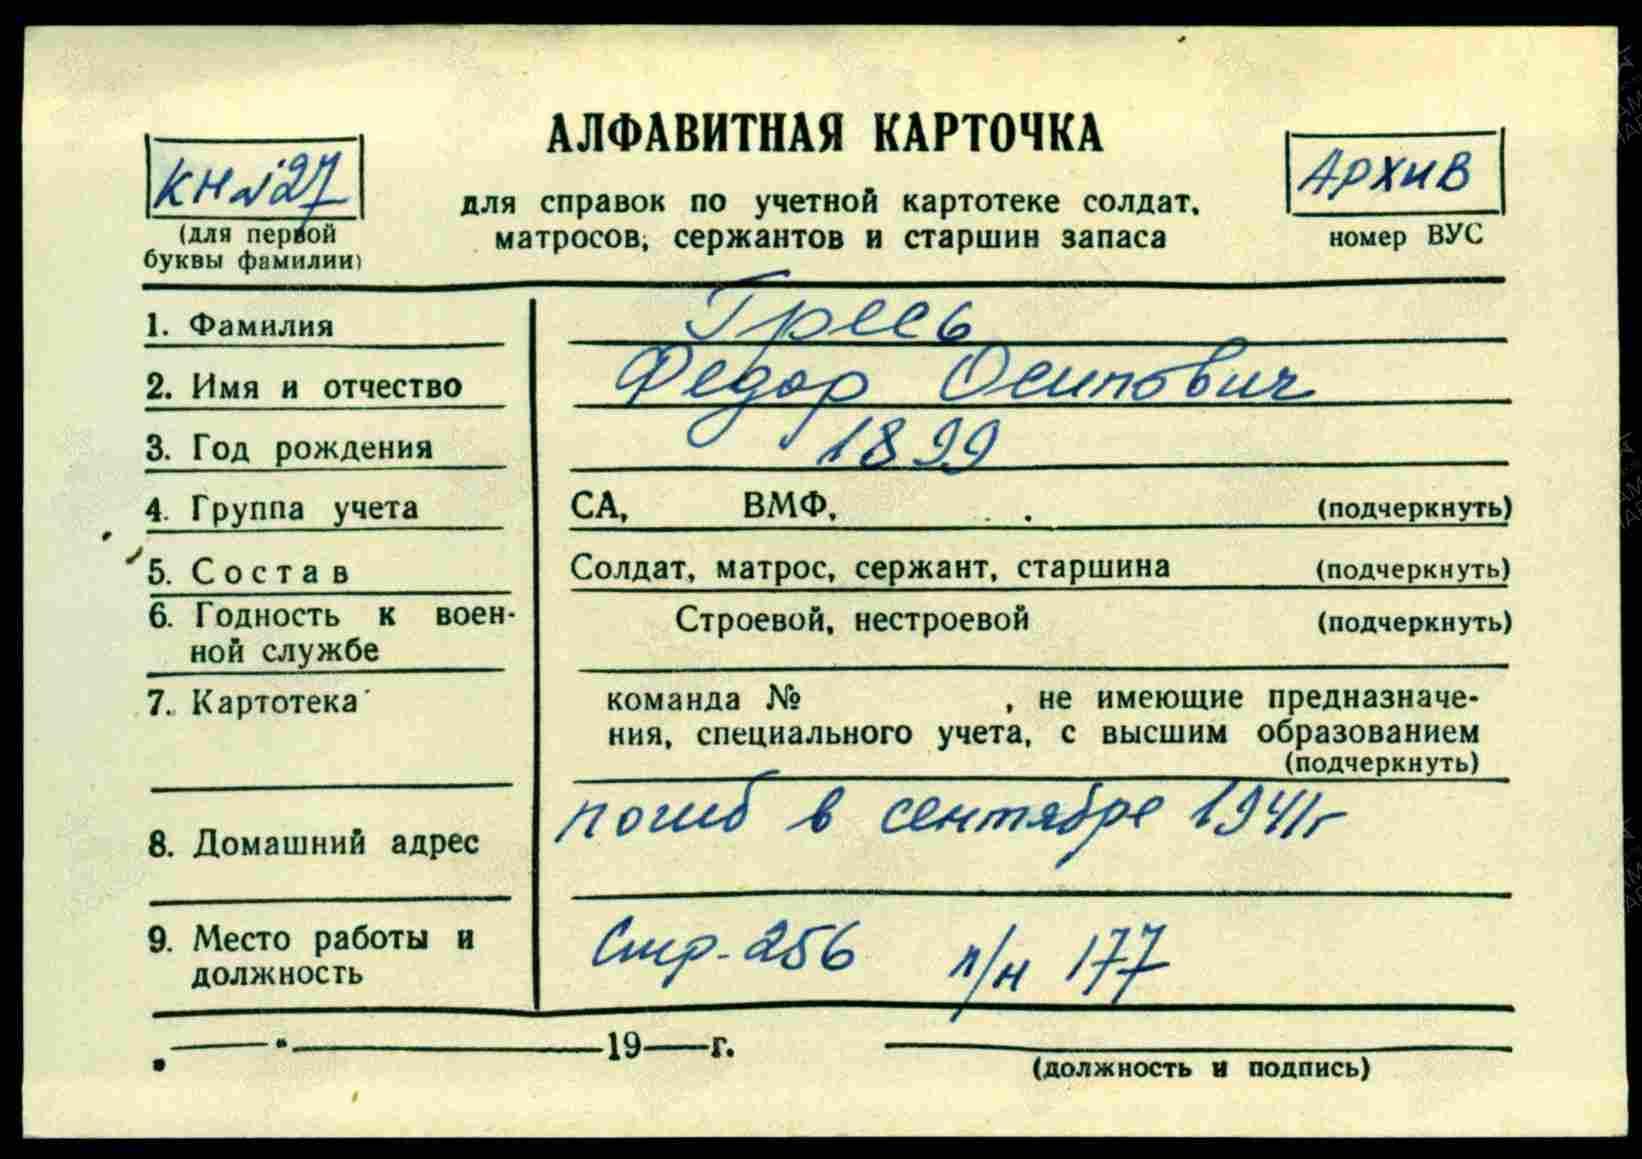 АЛФАВИТНАЯ КАРТОЧКА
кн №27
(для первой
буквы фамилии)
для справок по учетной картотеке солдат,
матросов, сержантов и старшин запаса
Архив
номер ВУС
1. Фамилия Гресь
2. Имя и отчество Федор Осипович
3. Год рождения 1899
4. Группа учета СА, ВМФ, (подчеркнуть)
5. Состав Солдат, матрос, сержант, старшина (подчеркнуть)
6. Годность к воен- Строевой, нестроевой (подчеркнуть)
ной службе
7. Картотека команда № , не имеющие предназначе-
ния, специального учета, с высшим образованием
(подчеркнуть)
8. Домашний адрес погиб в сентябре 1941г
9. Место работы и Стр. 256 п/н 177
должность
"—" 19—г.
(должность и подпись)